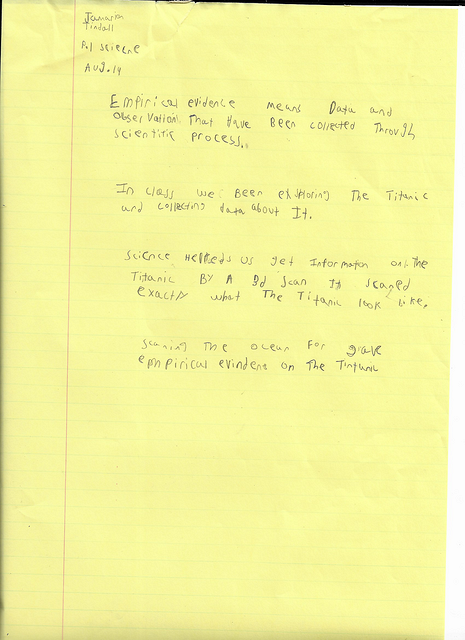 Tindall
Pol sciecne
Aug. 19
Empirical evidence means Data and
observations That Have Been collected Through
scientific process..
In class we Been exsploring The Titanic
and collecting data about It.
science Helpeds us get Information on The
Titanic By A 3d scan It scaned
exactly what The Titanic look like.
scaning The ocean For gave
empirical evindene on The Tintanic